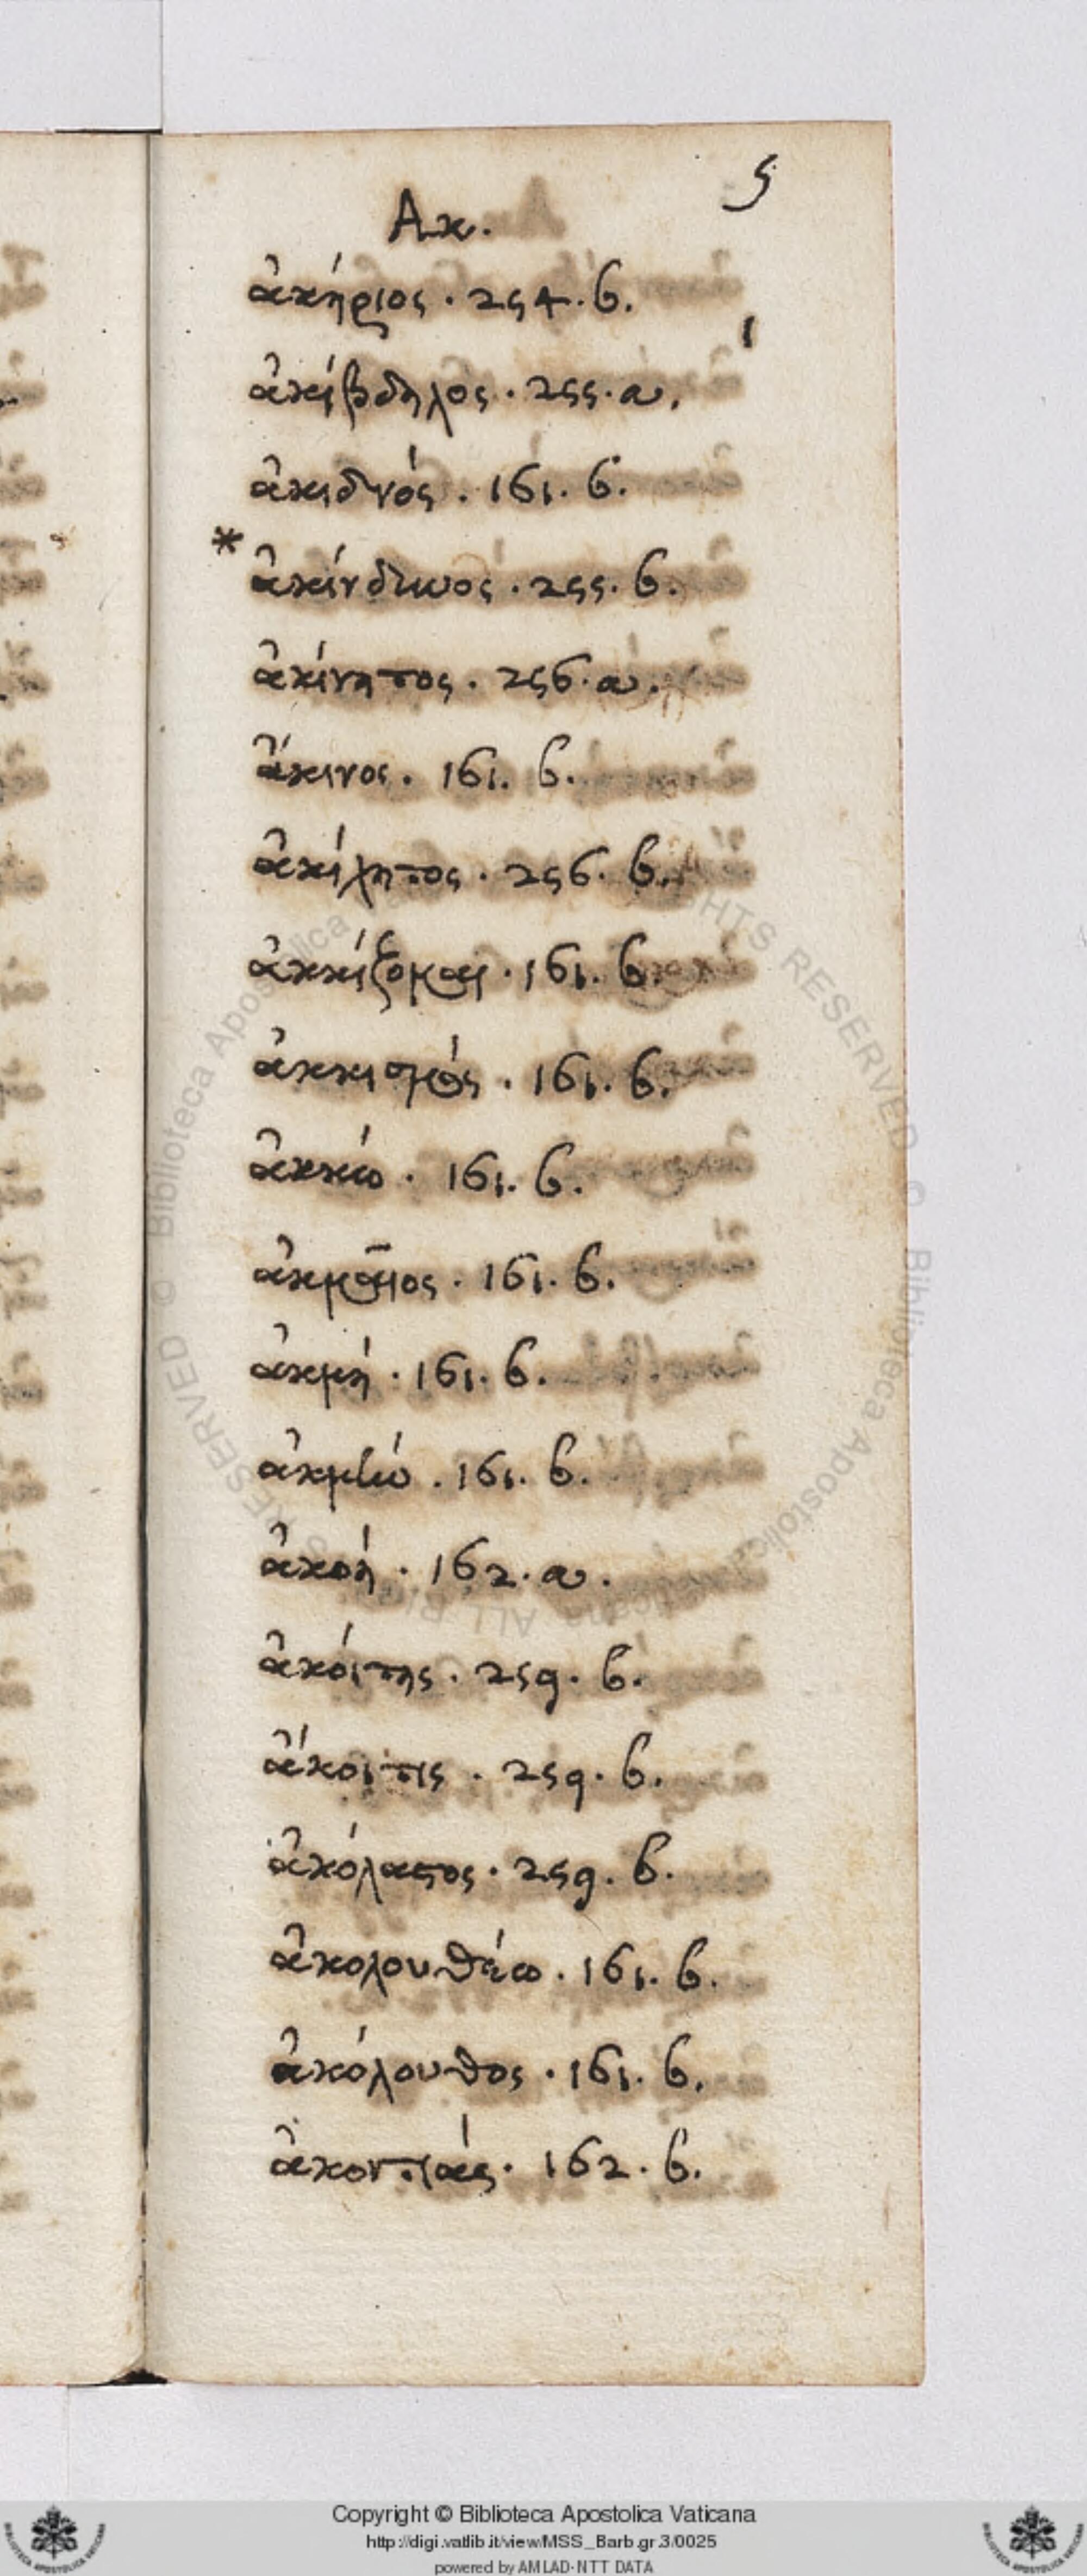 5
Ακ.
ἀκήριος · 254 · b.
ἀκίβδηλος · 255 · a.
ἀκιδνός · 161 · b.
* ἀκίνδυνος · 255 · b.
ἀκίνητος · 256 · a.
ἄκινος · 161 · b.
ἀκίχητος · 256 · b.
ἀκκίζομαι · 161 · b.
ἀκκισμός · 161 · b.
ἀκκώ · 161 · b.
ἀκμαῖος · 161 · b.
ἀκμή · 161 · b.
ἀκμήν · 161 · b.
ἀκοή · 162 · a.
ἀκοίτης · 259 · b.
ἄκοιτις · 259 · b.
ἀκόλαστος · 259 · b.
ἀκολουθέω · 161 · b.
ἀκόλουθος · 161 · b.
ἀκοντιάς · 162 · b.
Copyright © Biblioteca Apostolica Vaticana
http://digi.vatlib.it/view/MSS_Barb.gr.3/0025
powered by AMLAD-NTT DATA